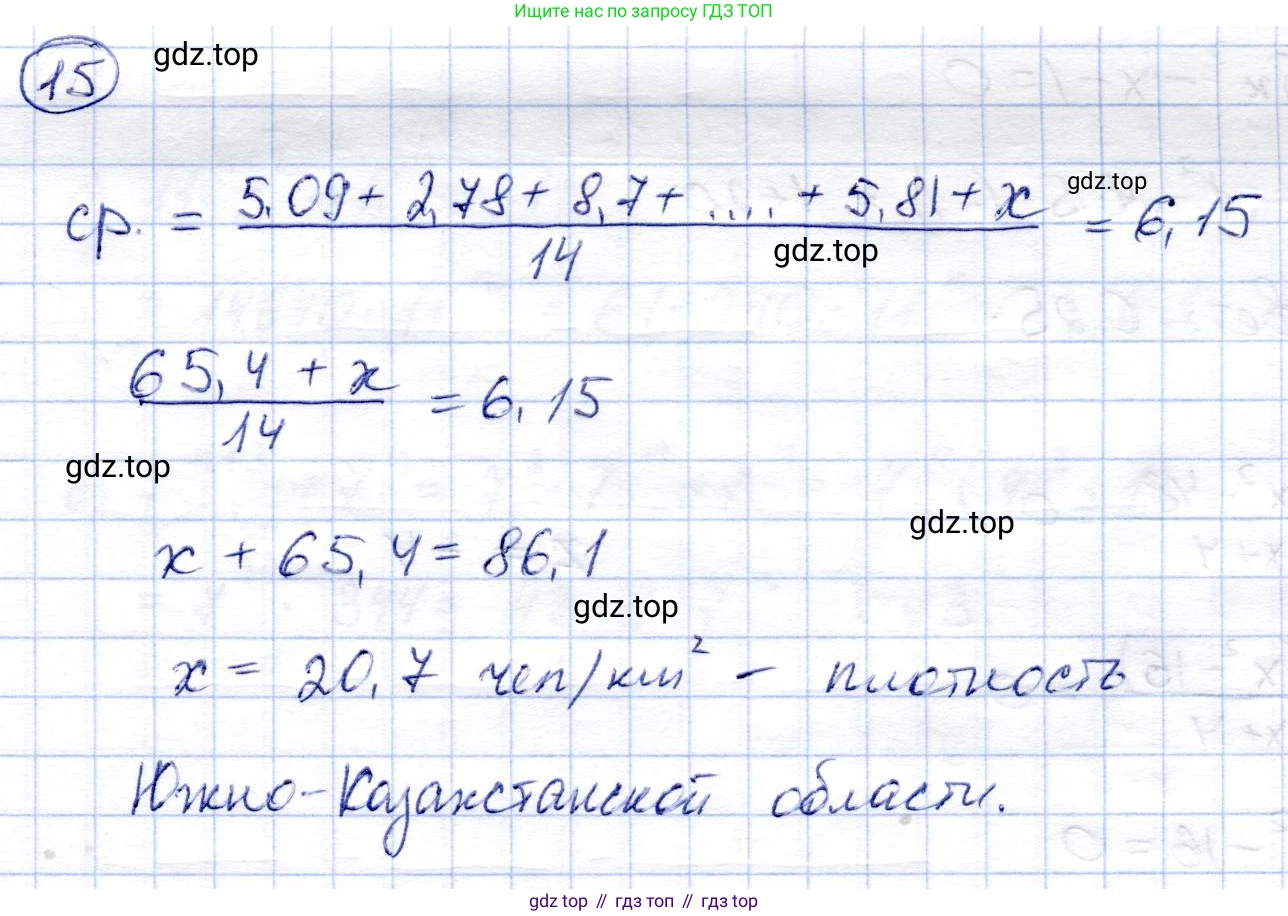 Ищите нас по запросу ГДЗ ТОП
15 gdz.top
ср. = (5,09 + 2,78 + 8,7 + .... + 5,81 + x) / 14 = 6,15
gdz.top
gdz.top
(65,4 + x) / 14 = 6,15
gdz.top
gdz.top
x + 65,4 = 86,1
gdz.top
x = 20,7 чел/км² – плотность
Южно-Казахстанской области.
gdz.top // гдз топ // gdz.top